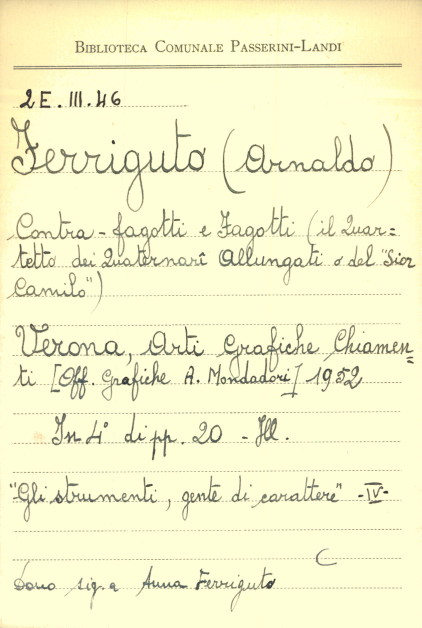 BIBLIOTECA COMUNALE PASSERINI-LANDI
2E. III. 46
Ferriguto (Arnaldo)
Contra-fagotti e Fagotti (il Quar=
tetto dei Quaternarî Allungati o del "Sior
Camilo")
Verona, Arti Grafiche Chiamen=
ti [Off. Grafiche A. Mondadori] 1952
In 4° di pp. 20 - Ill.
"Gli strumenti, gente di carattere" -IV-
C
Dono sig.a Anna Ferriguto